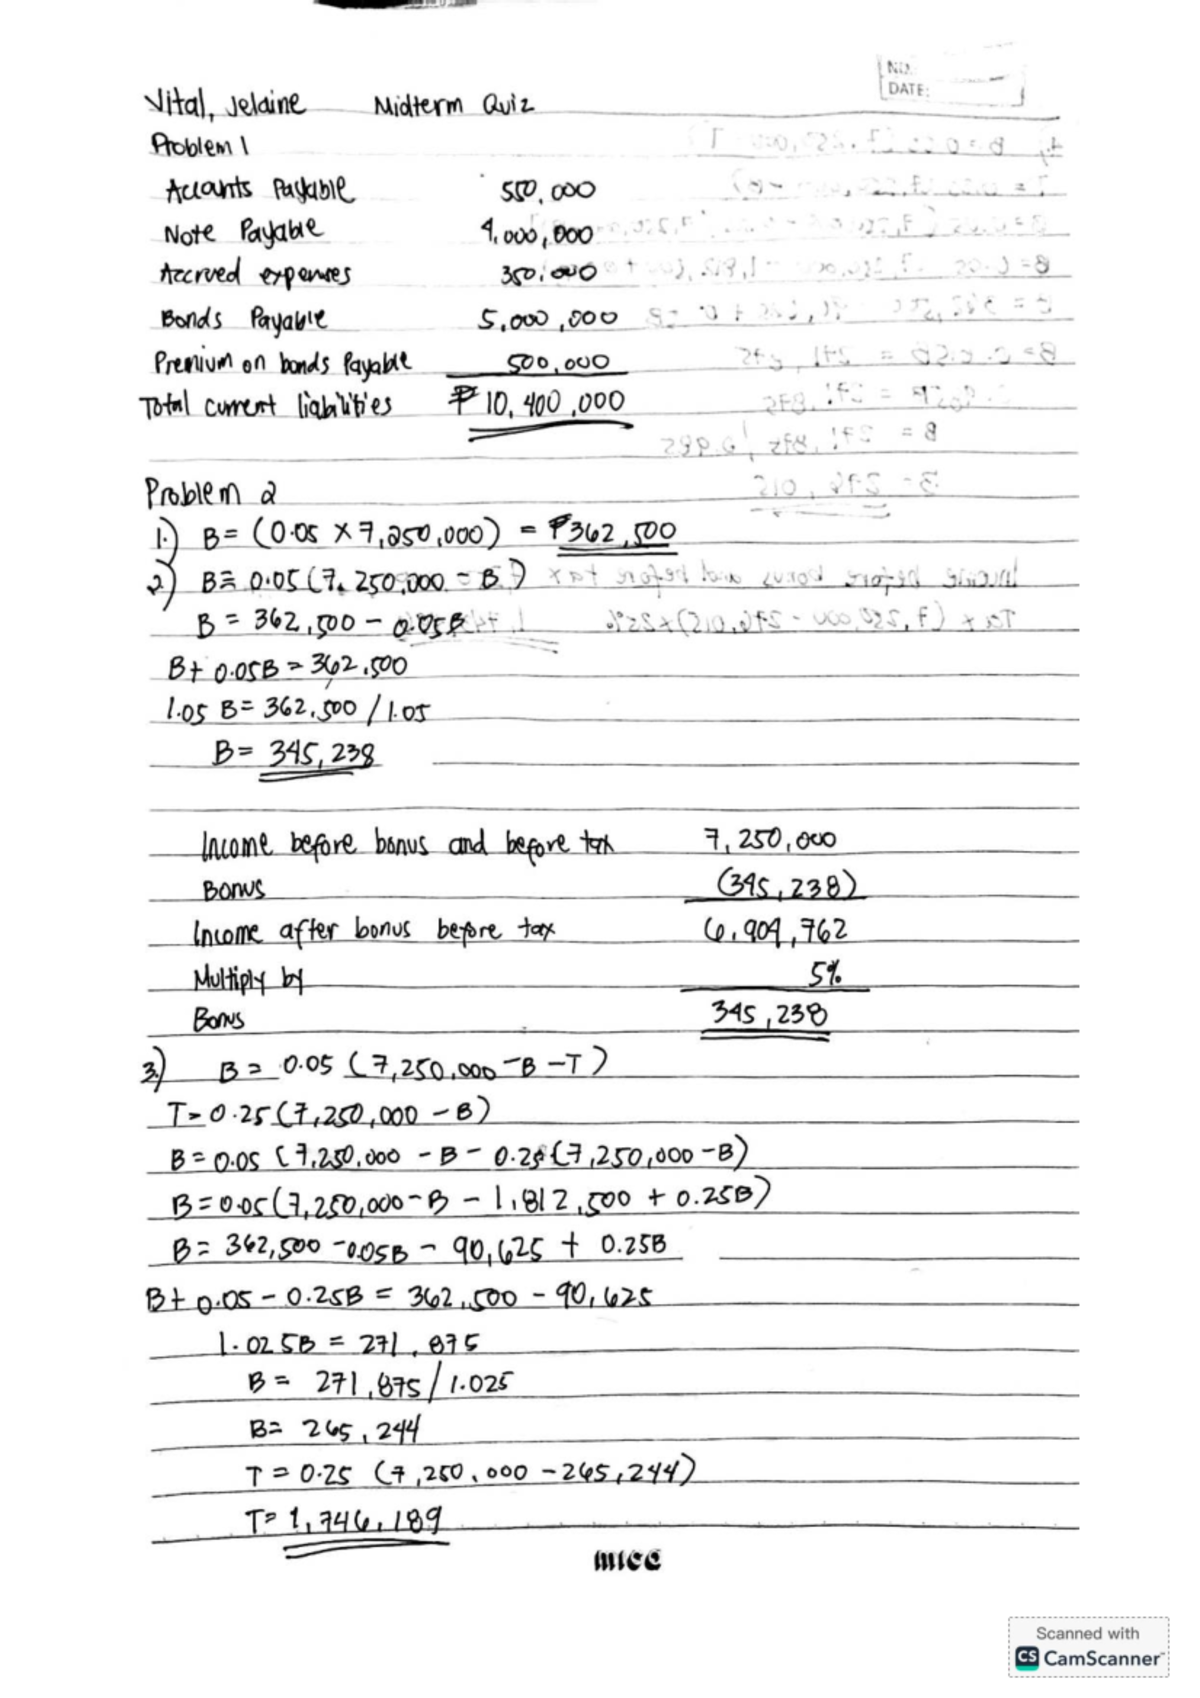 NO.
DATE:
Vital, Jelaine Midterm Quiz
Problem 1
Accounts Payable 550,000
Note Payable 4,000,000
Accrued expenses 350,000
Bonds Payable 5,000,000
Premium on bonds Payable 500,000
Total current liabilities ₱ 10,400,000
Problem 2
1.) B = (0.05 x 7,250,000) = ₱362,500
2.) B = 0.05 (7,250,000 - B)
B = 362,500 - 0.05B
B + 0.05B = 362,500
1.05 B = 362,500 / 1.05
B = 345,238
Income before bonus and before tax 7,250,000
Bonus (345,238)
Income after bonus before tax 6,904,762
Multiply by 5%
Bonus 345,238
3.) B = 0.05 (7,250,000 - B - T)
T = 0.25 (7,250,000 - B)
B = 0.05 (7,250,000 - B - 0.25 (7,250,000 - B)
B = 0.05 (7,250,000 - B - 1,812,500 + 0.25B)
B = 362,500 - 0.05B - 90,625 + 0.25B
B + 0.05 - 0.25B = 362,500 - 90,625
1.025B = 271,875
B = 271,875 / 1.025
B = 265,244
T = 0.25 (7,250,000 - 265,244)
T = 1,746,189
MICC
Scanned with
CS CamScanner